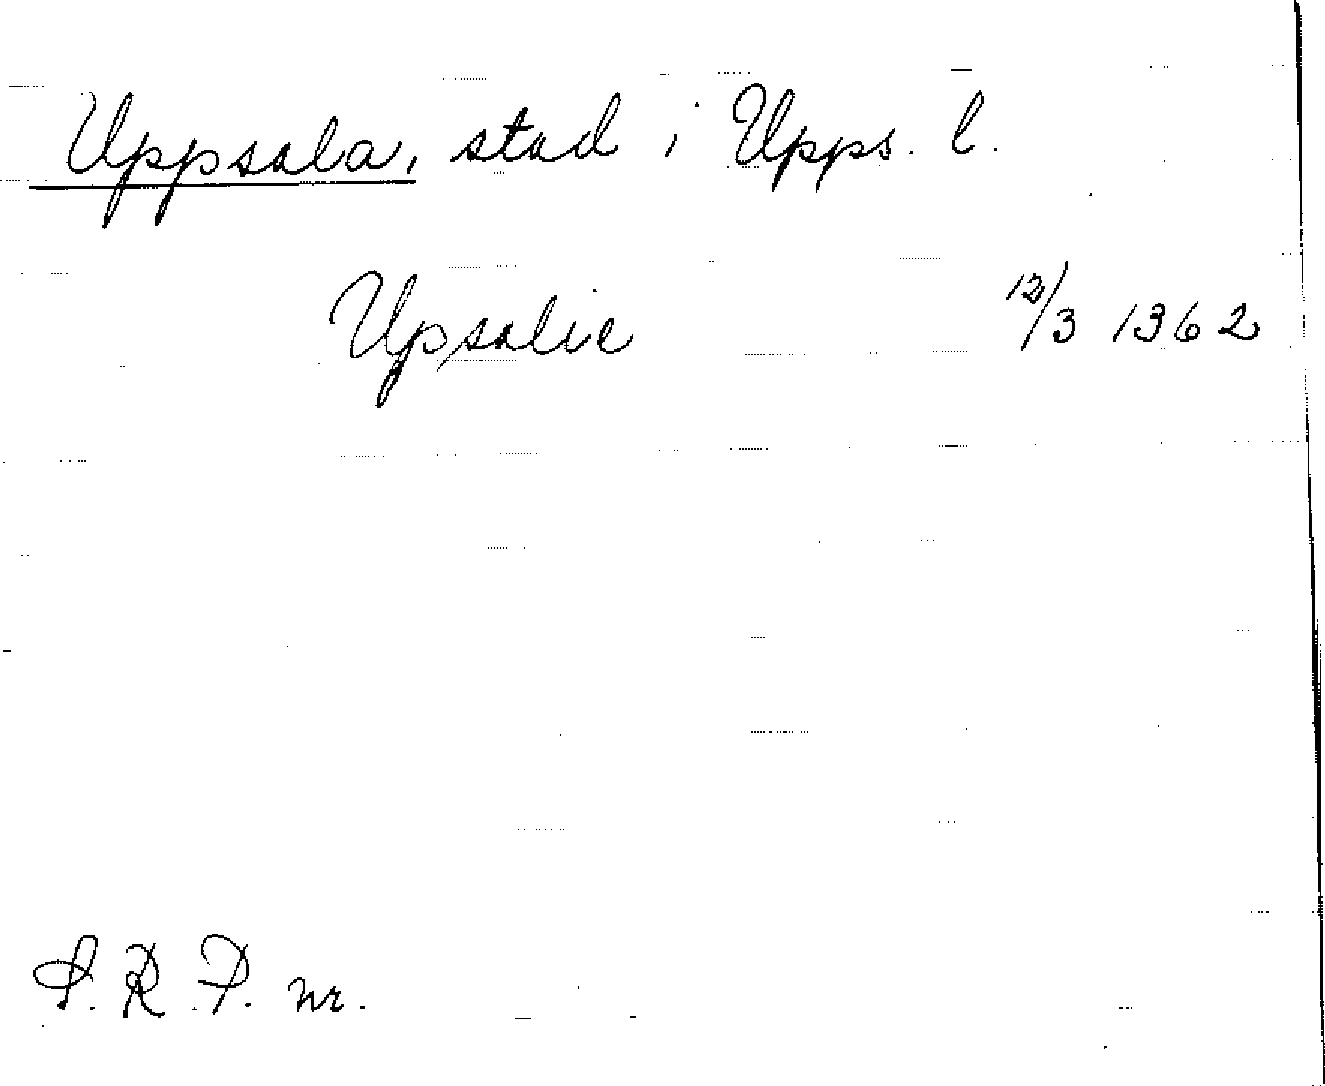 Uppsala, stad i Upps. l.
Upsalie 12/3 1362
S. R. P. nr.